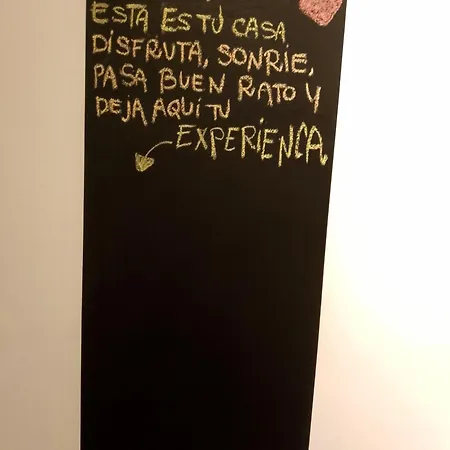 ESTA ES TU CASA
DISFRUTA, SONRIE,
PASA BUEN RATO Y
DEJA AQUI TU
EXPERIENCA